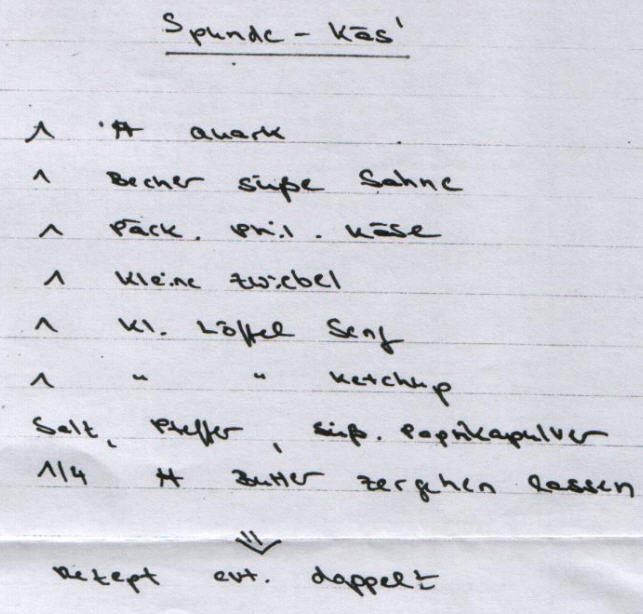 Spunde - Käs'
1 ℔ Quark
1 Becher süße Sahne
1 Päck. Phil. Käse
1 kleine Zwiebel
1 kl. Löffel Senf
1 " " Ketchup
Salt, Pfeffer, süß. Paprikapulver
1/4 ℔ Butter zergehen lassen
⇓
Rezept evt. doppelt